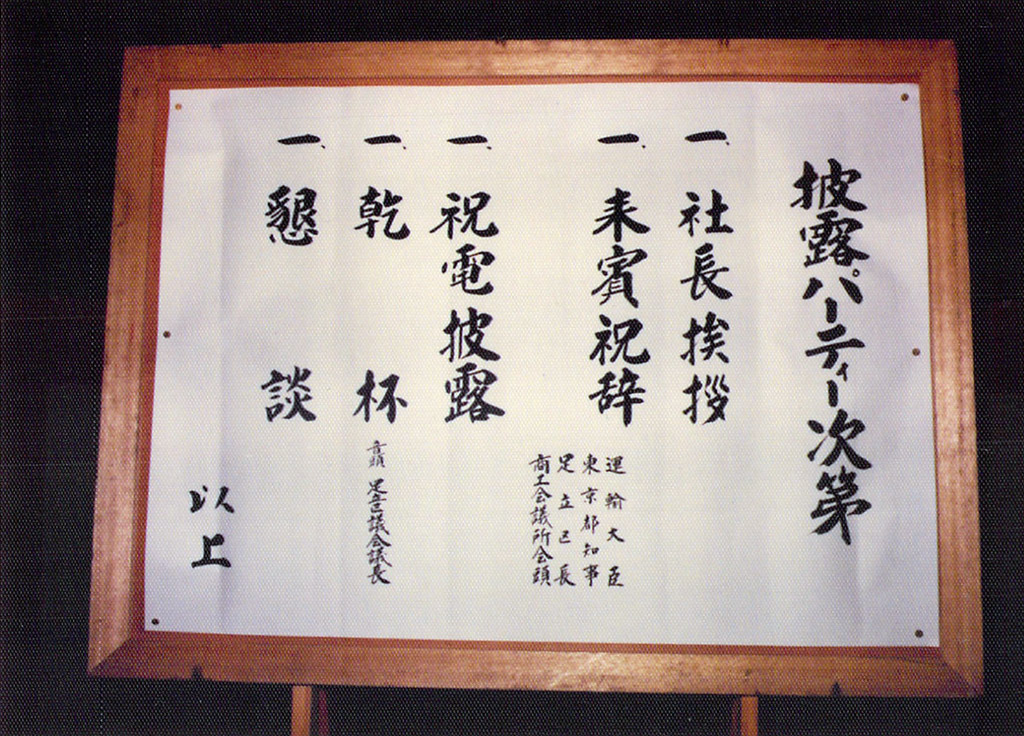 披露パーティー次第
一、社長挨拶
一、来賓祝辞
運輸大臣
東京都知事
足立区長
商工会議所会頭
一、祝電披露
一、乾杯
音頭 足立区議会議長
一、懇談
以上